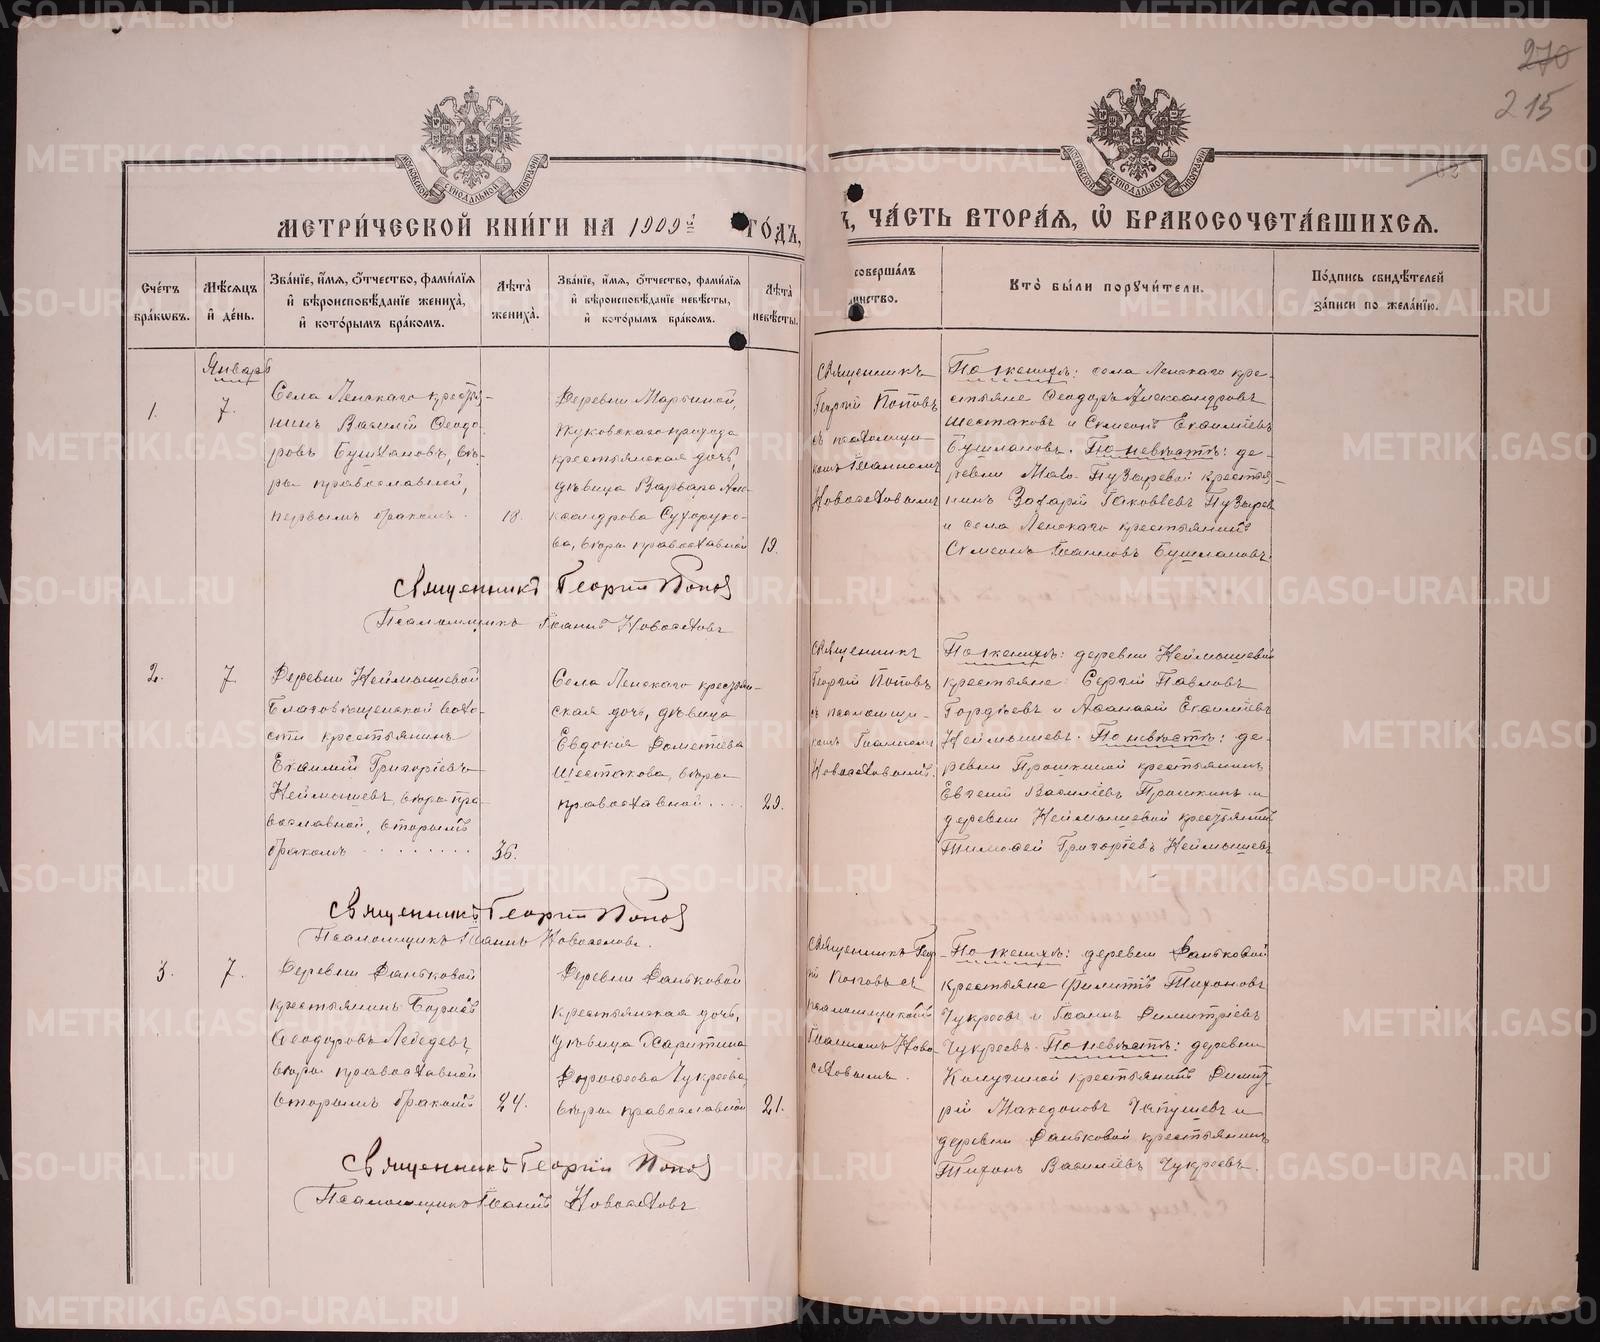 270
215
МЕТРИ́ЧЕСКОЙ КНИ́ГИ НА 1909й ГО́ДЪ,
Ъ, ЧА́СТЬ ВТОРА́Я, Ѡ БРАКОСОЧЕТА́ВШИХСЯ.
Сче́тъ бра́кѡвъ.
Мѣ́сяцъ и҆ де́нь.
Зва́нїе, и҆́мя, ѻ҆́тчество, фами́лїя
и҆ вѣроисповѣ́данїе жениха̀,
и҆ кото́рымъ бра́комъ.
Лѣ́та жениха̀.
Зва́нїе, и҆́мя, ѻ҆́тчество, фами́лїя
и҆ вѣроисповѣ́данїе невѣ́сты,
и҆ кото́рымъ бра́комъ.
Лѣ́та невѣ́сты.
соверша́лъ
инство.
Кто̀ бы́ли порꙋчи́тели.
По́дпись свидѣ́телей
за́писи по жела́нїю.
Январь
1.
7.
Села Ленскаго крестья-
нинъ Василій Ѳеодо-
ровъ Бушлановъ, вѣ-
ры православной,
первымъ бракомъ.
18.
Деревни Марьиной,
Жуковскаго прихода
крестьянская дочь,
дѣвица Варвара Але-
ксандрова Сухоруко-
ва, вѣры православной
19.
Священникъ
Георгій Поповъ
съ псаломщи-
комъ Іоанномъ
Новоселовымъ
По женихѣ: села Ленскаго кре-
стьяне Ѳеодоръ Александровъ
Шестаковъ и Симеонъ Евѳиміевъ
Бушлановъ. По невѣстѣ: де-
ревни Мало-Пузыревой крестья-
нинъ Захарій Іаковлевъ Пузырев
и села Ленскаго крестьянинъ
Симеонъ Іоанновъ Бушлановъ.
Священникъ Георгій Попов
Псаломщикъ Іоаннъ Новоселовъ
2.
7.
Деревни Неймышевой
Благовѣщенской воло-
сти крестьянинъ
Евѳимій Григоріевъ
Неймышевъ, вѣры пра-
вославной, вторымъ
бракомъ
36.
Села Ленскаго крестьян-
ская дочь, дѣвица
Евдокія Дометіева
Шестакова, вѣры
православной
29.
Священникъ
Георгій Поповъ
съ псаломщи-
комъ Іоанномъ
Новоселовымъ.
По женихѣ: деревни Неймышевой
крестьяне: Сергій Павловъ
Гордѣевъ и Аѳанасій Евѳиміевъ
Неймышевъ. По невѣстѣ: де-
ревни Прошкиной крестьянинъ
Евгеній Василіевъ Прошкинъ и
деревни Неймышевой крестьянинъ
Тимоѳей Григоріевъ Неймышевъ
Священникъ Георгій Попов
Псаломщикъ Іоаннъ Новоселовъ.
3.
7.
Деревни Даньковой
крестьянинъ Борисъ
Ѳеодоровъ Лебедевъ,
вѣры православной
вторымъ бракомъ
24.
Деревни Даньковой
крестьянская дочь,
дѣвица Харитина
Дороѳеева Чукреева,
вѣры православной
21.
Священникъ Геор-
гій Поповъ съ
псаломщикомъ
Іоанномъ Ново-
селовымъ.
По женихѣ: деревни Даньковой
крестьяне Филиппъ Тихоновъ
Чукреевъ и Іоаннъ Димитріевъ
Чукреевъ. По невѣстѣ: деревни
крестьянинъ Димит-
рій Македоновъ и
деревни Даньковой крестьянинъ
Тихонъ Василіевъ Чукреевъ.
Священникъ Георгій Попов
Псаломщикъ Іоаннъ Новоселовъ
METRIKI.GASO-URAL.RU